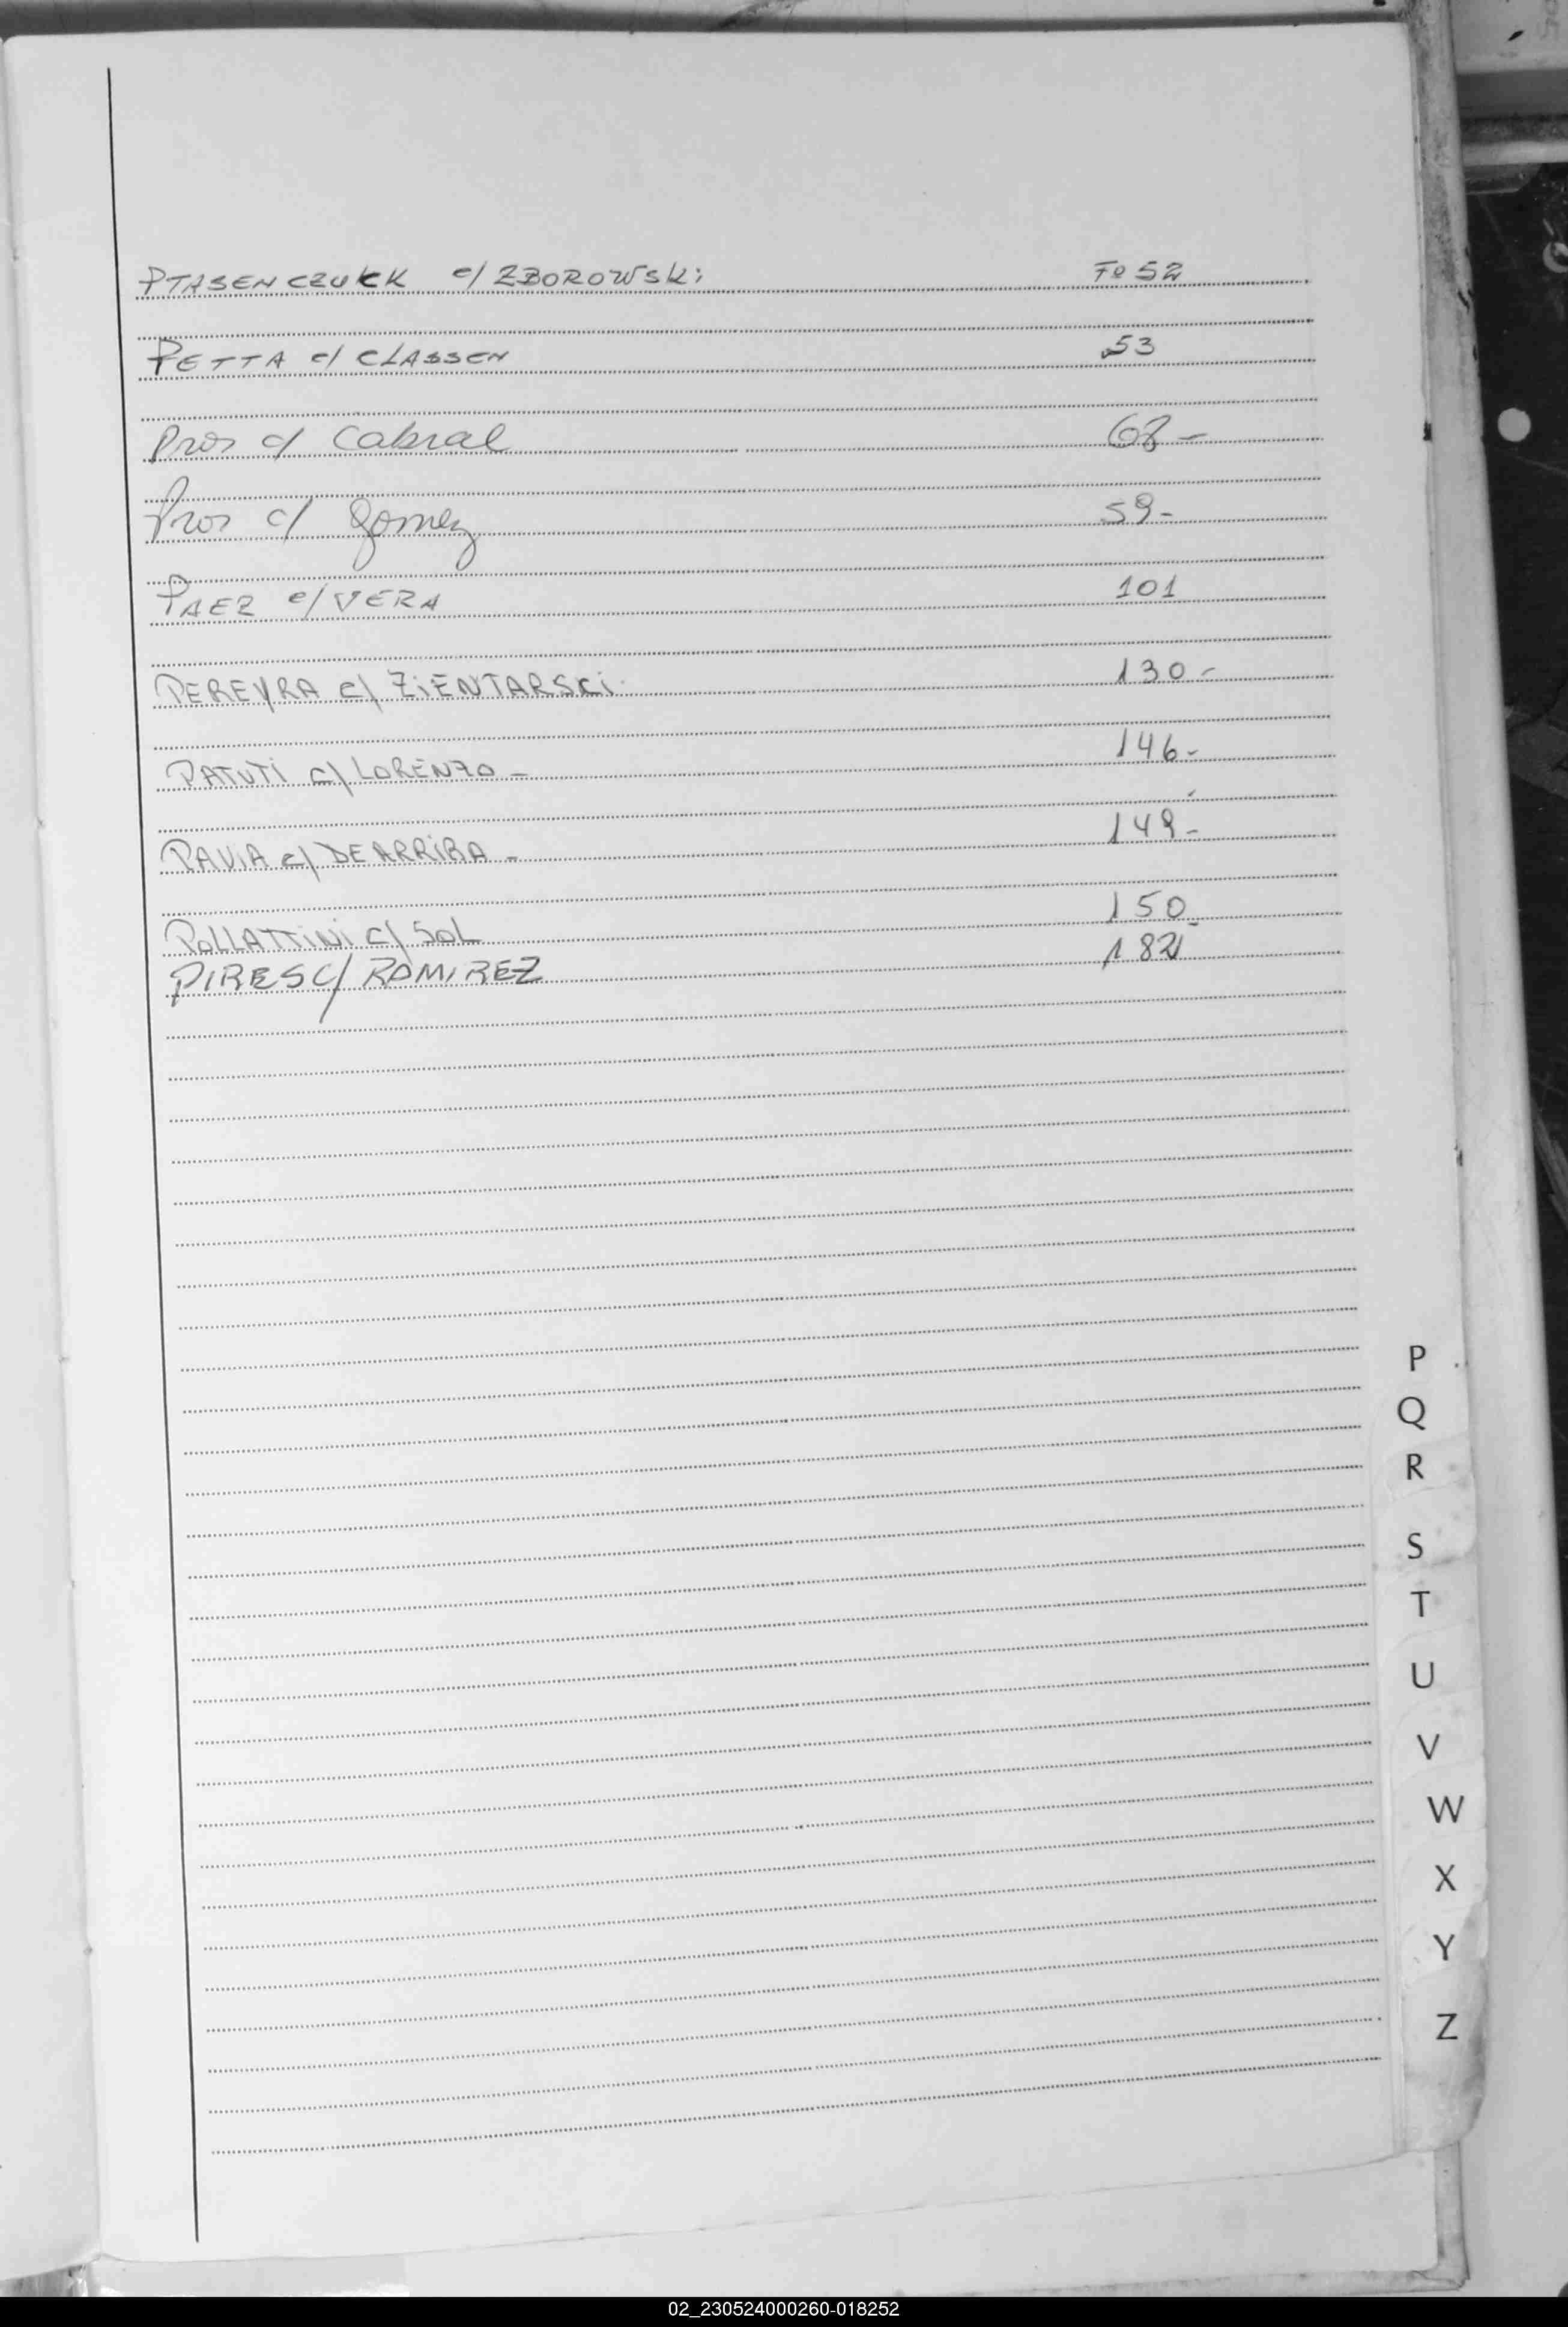 PTASENCZUKK c/ ZBOROWSKi Fº 52
PETTA c/ CLASSEN 53
Pros c/ Cabral 68-
Pros c/ Gomez 59-
PAEZ c/ VERA 101
PEREYRA c/ ZiENTARSCi. 130-
PATUTi c/ LORENZO - 146-
PAViA c/ DE ARRiBA - 149-
POLLATTiNi c/ SOL 150-
PIRES C/ RAMIREZ 182
P
Q
R
S
T
U
V
W
X
Y
Z
02_230524000260-018252